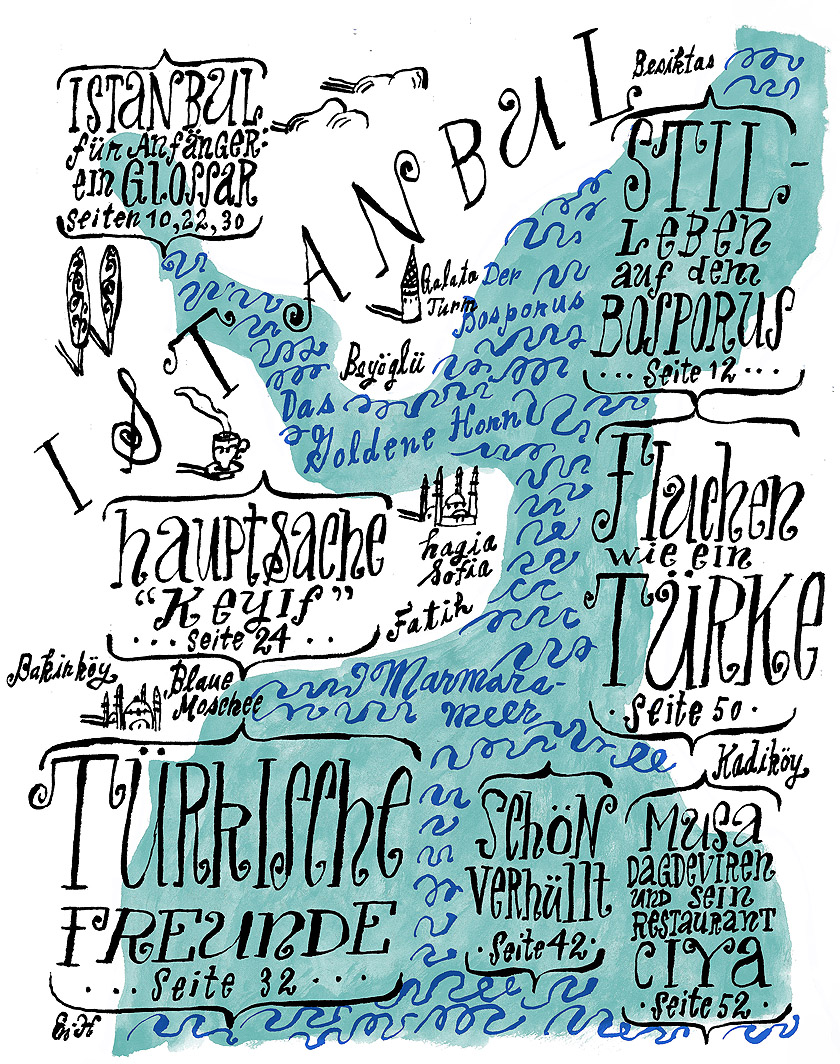 ISTANBUL
ISTANBUL
für AnfäNGER·
ein GLOSSAR
Seiten 10, 22, 30
Besiktas
STIL-
LEBEN
auf dem
BOSPORUS
···Seite 12···
Galata
Turm
Der
Bosporus
Beyöglü
Das
Goldene Horn
Fluchen
wie ein
TÜRKE
·Seite 50·
hauptsache
"Keyif"
···Seite 24··
hagia
Sofia
Fatih
Bakirköy
Blaue
Moschee
Marmara-
meer
Kadiköy
TÜRKische
FREUNDE
···Seite 32···
SCHÖN
VERHüllt
·Seite 42·
Musa
DAGDEVIREN
UND SEIN
RESTAURANT
CIYA
·Seite 52·